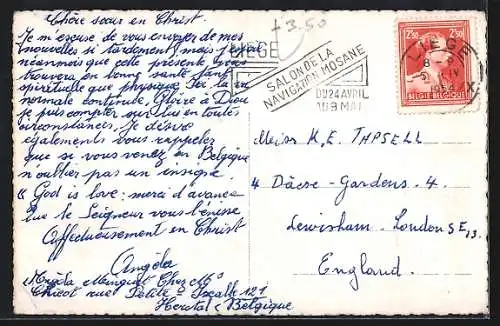 Chère sœur en Christ
Je m'excuse de vous envoyer de mes
nouvelles si tardement, mais j'espère
néanmoins que cette présente vous
trouvera en bonne santé tant
spirituelle que physique. Ici la vie
normale continue. Gloire à Dieu
je puis compter sur Lui en toutes
circonstances. Je désire
également vous rappeler
que si vous venez en Belgique
n'oublier pas un insigne.
"God is love: merci d'avance
Que le Seigneur vous bénisse
Affectueusement en Christ
Angèla
Angèla Minguet Chez Mo
Chicot rue Petite Foxalle 121
Herstal Belgique
+3.50
LIEGE
SALON DE LA
NAVIGATION MOSANE
DU 24 AVRIL
AU 9 MAI
2F50 2F50
BELGIE-BELGIQUE
LIEGE
8
5 IV
1954
X
Miss K. E. TAPSELL
4 Dacre-Gardens. 4.
Lewisham-London SE 13.
England.